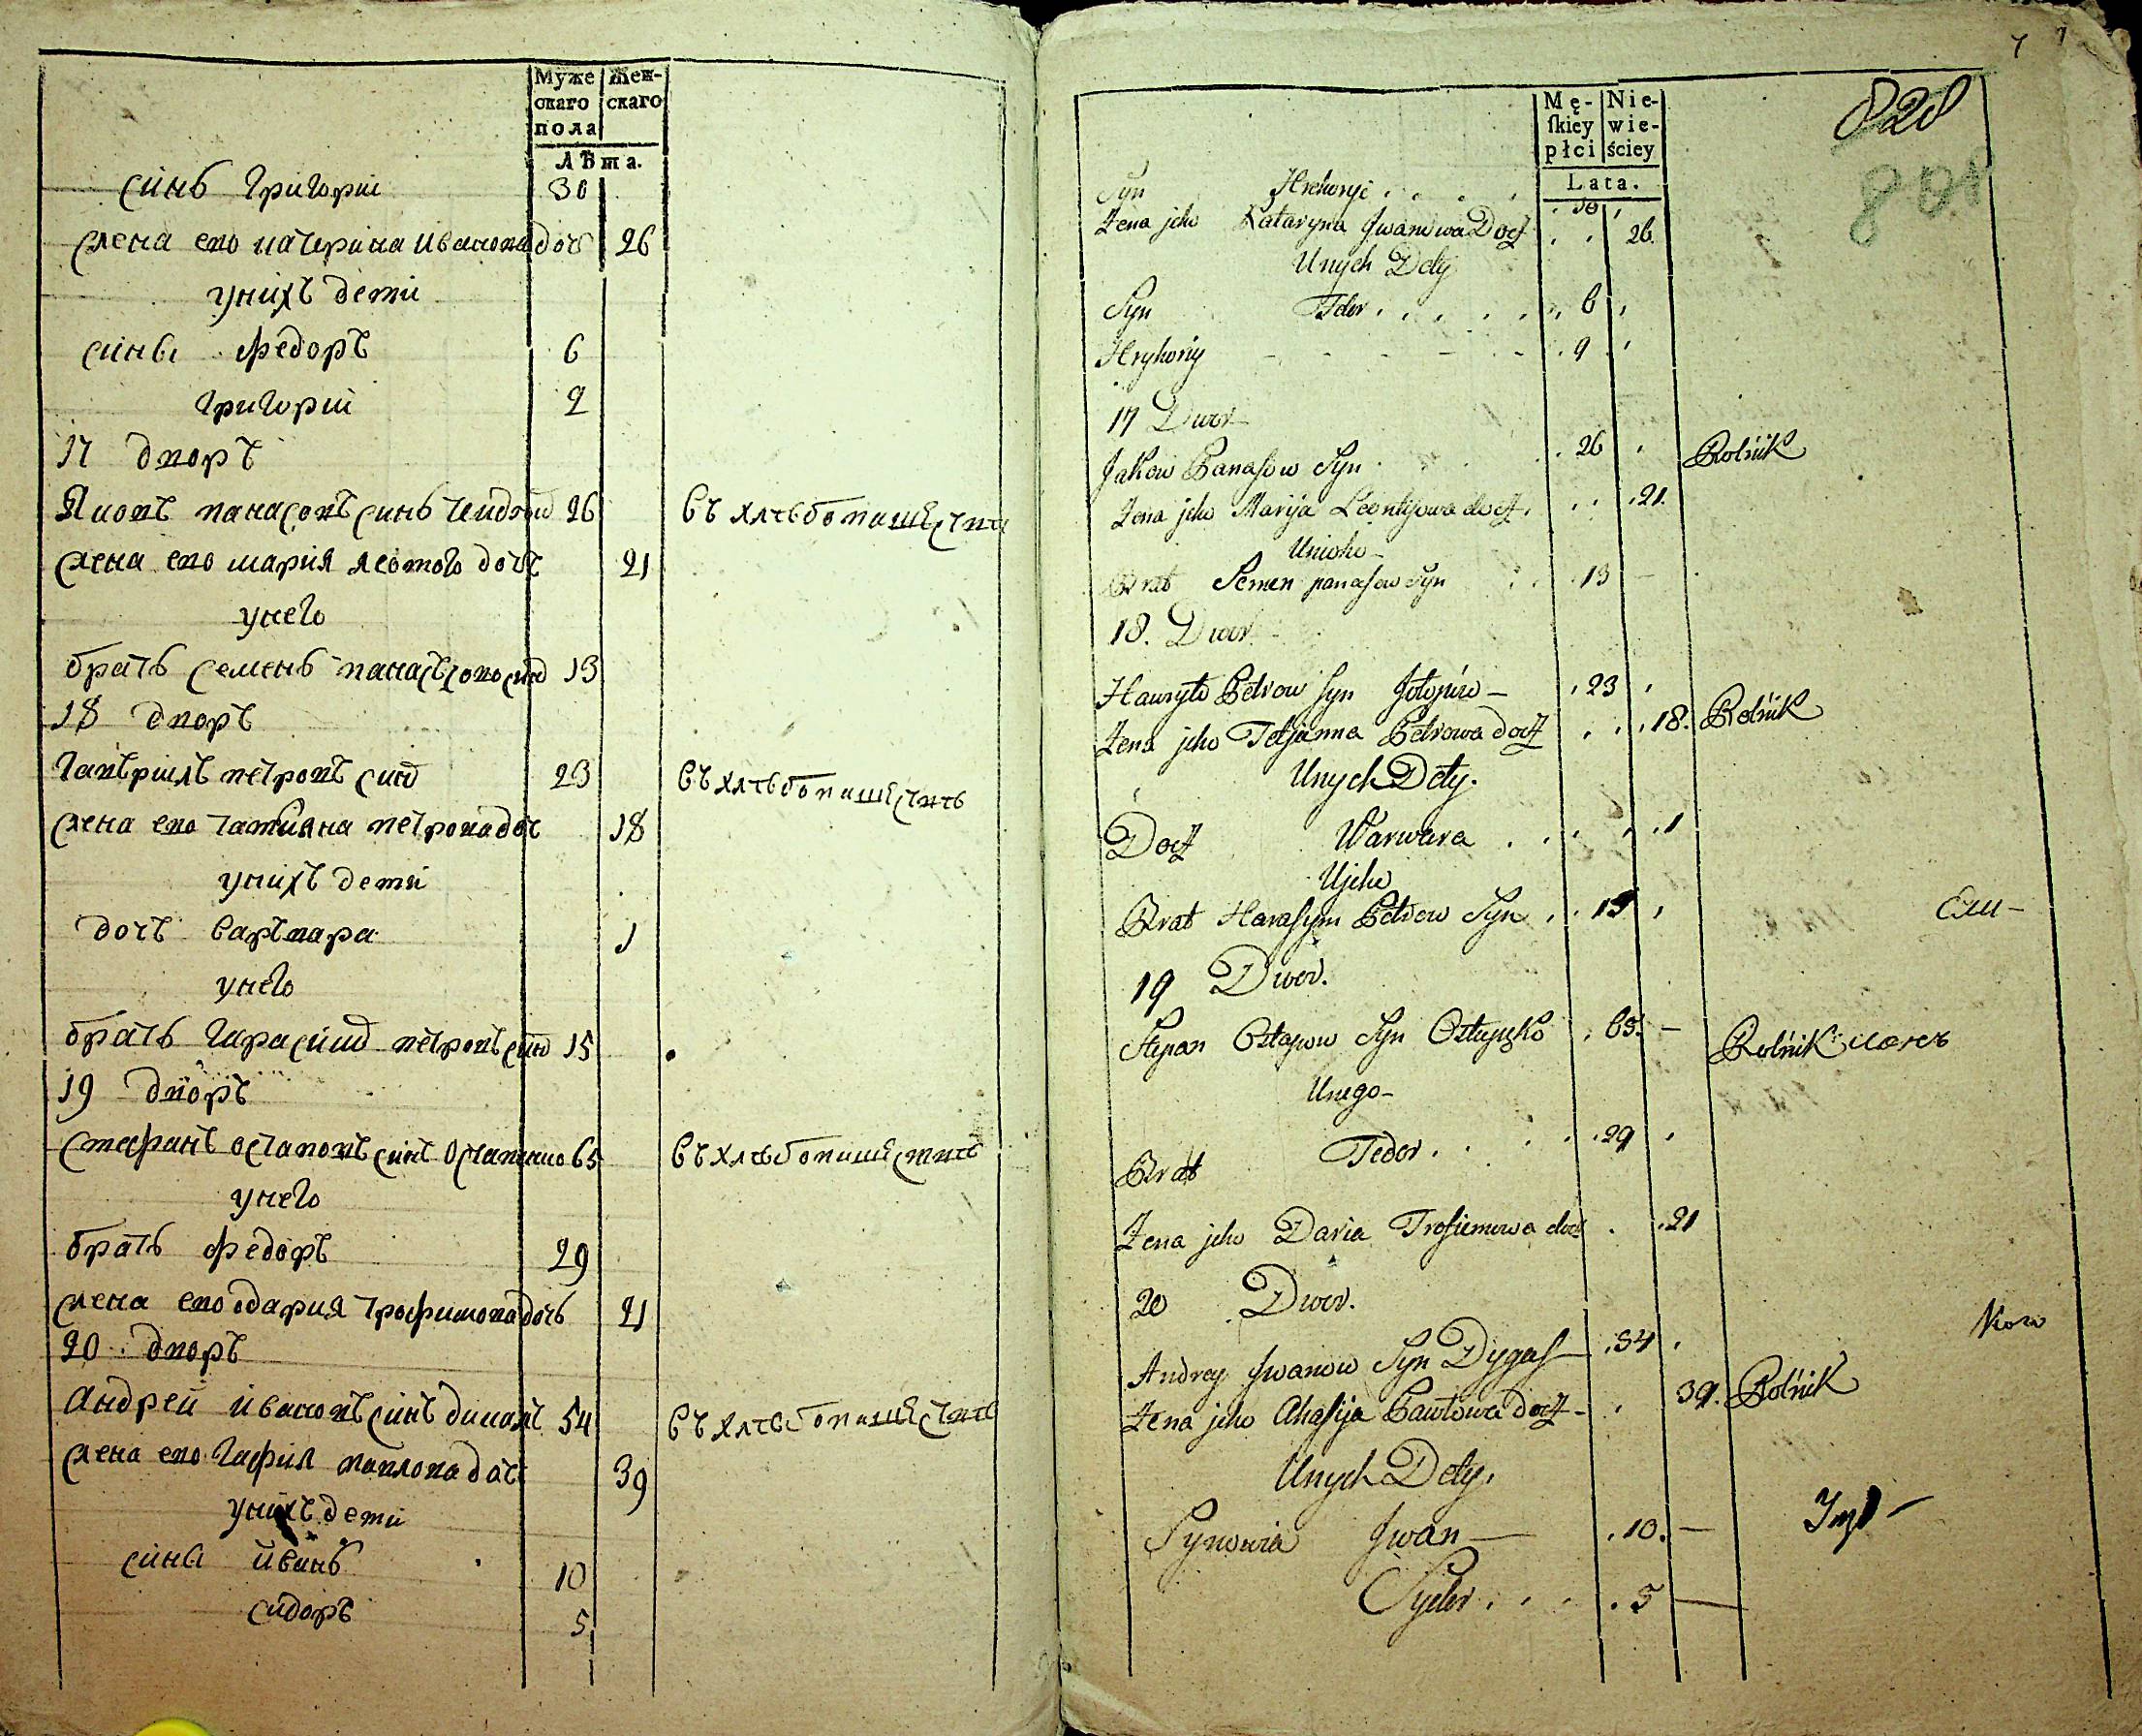 Муже скаго пола
Жен- скаго
Лѣта.
синъ григорій 30
жена его катерина иванова дочъ 26
унихъ дети
сины федоръ 6
григорій 2
17 дворъ
Яковъ панасовъ синъ 26 въ хлѣбопашествѣ
жена его мария дочъ 21
унего
братъ семенъ синъ 13
18 дворъ
гавърилъ петровъ синъ 23 въ хлѣбопашествѣ
жена его татияна петрова дочъ 18
унихъ дети
дочъ варъвара 1
унего
братъ гарасимъ петровъ синъ 15
19 дворъ
стефанъ остаповъ синъ остапенко 65 въ хлѣбопашествѣ
унего
братъ федоръ 29
жена его одария трофимова дочъ 21
20 дворъ
андрей ивановъ синъ 54 въ хлѣбопашествѣ
жена его гафия павлова дочъ 39
унихъ дети
сины иванъ 10
сидоръ 5
7
820
801
Mę- skiey płci
Nie- wie- ściey
Lata.
Syn Hrehoryi 30
Żena jeho Kataryna Jwanowa Docz 26.
Unych Dety
Syn Feder 6
Hryhoriy
17 Dwor
Jakow Panasow Syn 26 Rolnik
Żena jeho Marija Leontijowa docz 21.
Unioho
Brat Semen panasow Syn 13
18. Dwor
Hawryło Petrow Syn 23
Żena jeho Tetjanna Petrowa docz 18. Rolnik
Unych Dety.
Docz Warwara 1
Ujeho
Brat Harasym Petrow Syn 15
19 Dwor.
Stepan Ostapow Syn 65. Rolnik
Unego
Brat Fedor 29
Żena jeho Daria Trofiemowa docz 21
20 Dwor.
Andrey Jwanow Syn Dygas 54
Żena jeho Ahafija Pawłowa docz 39. Rolnik
Unych Dety.
Synowia Jwan 10.
Syder 5